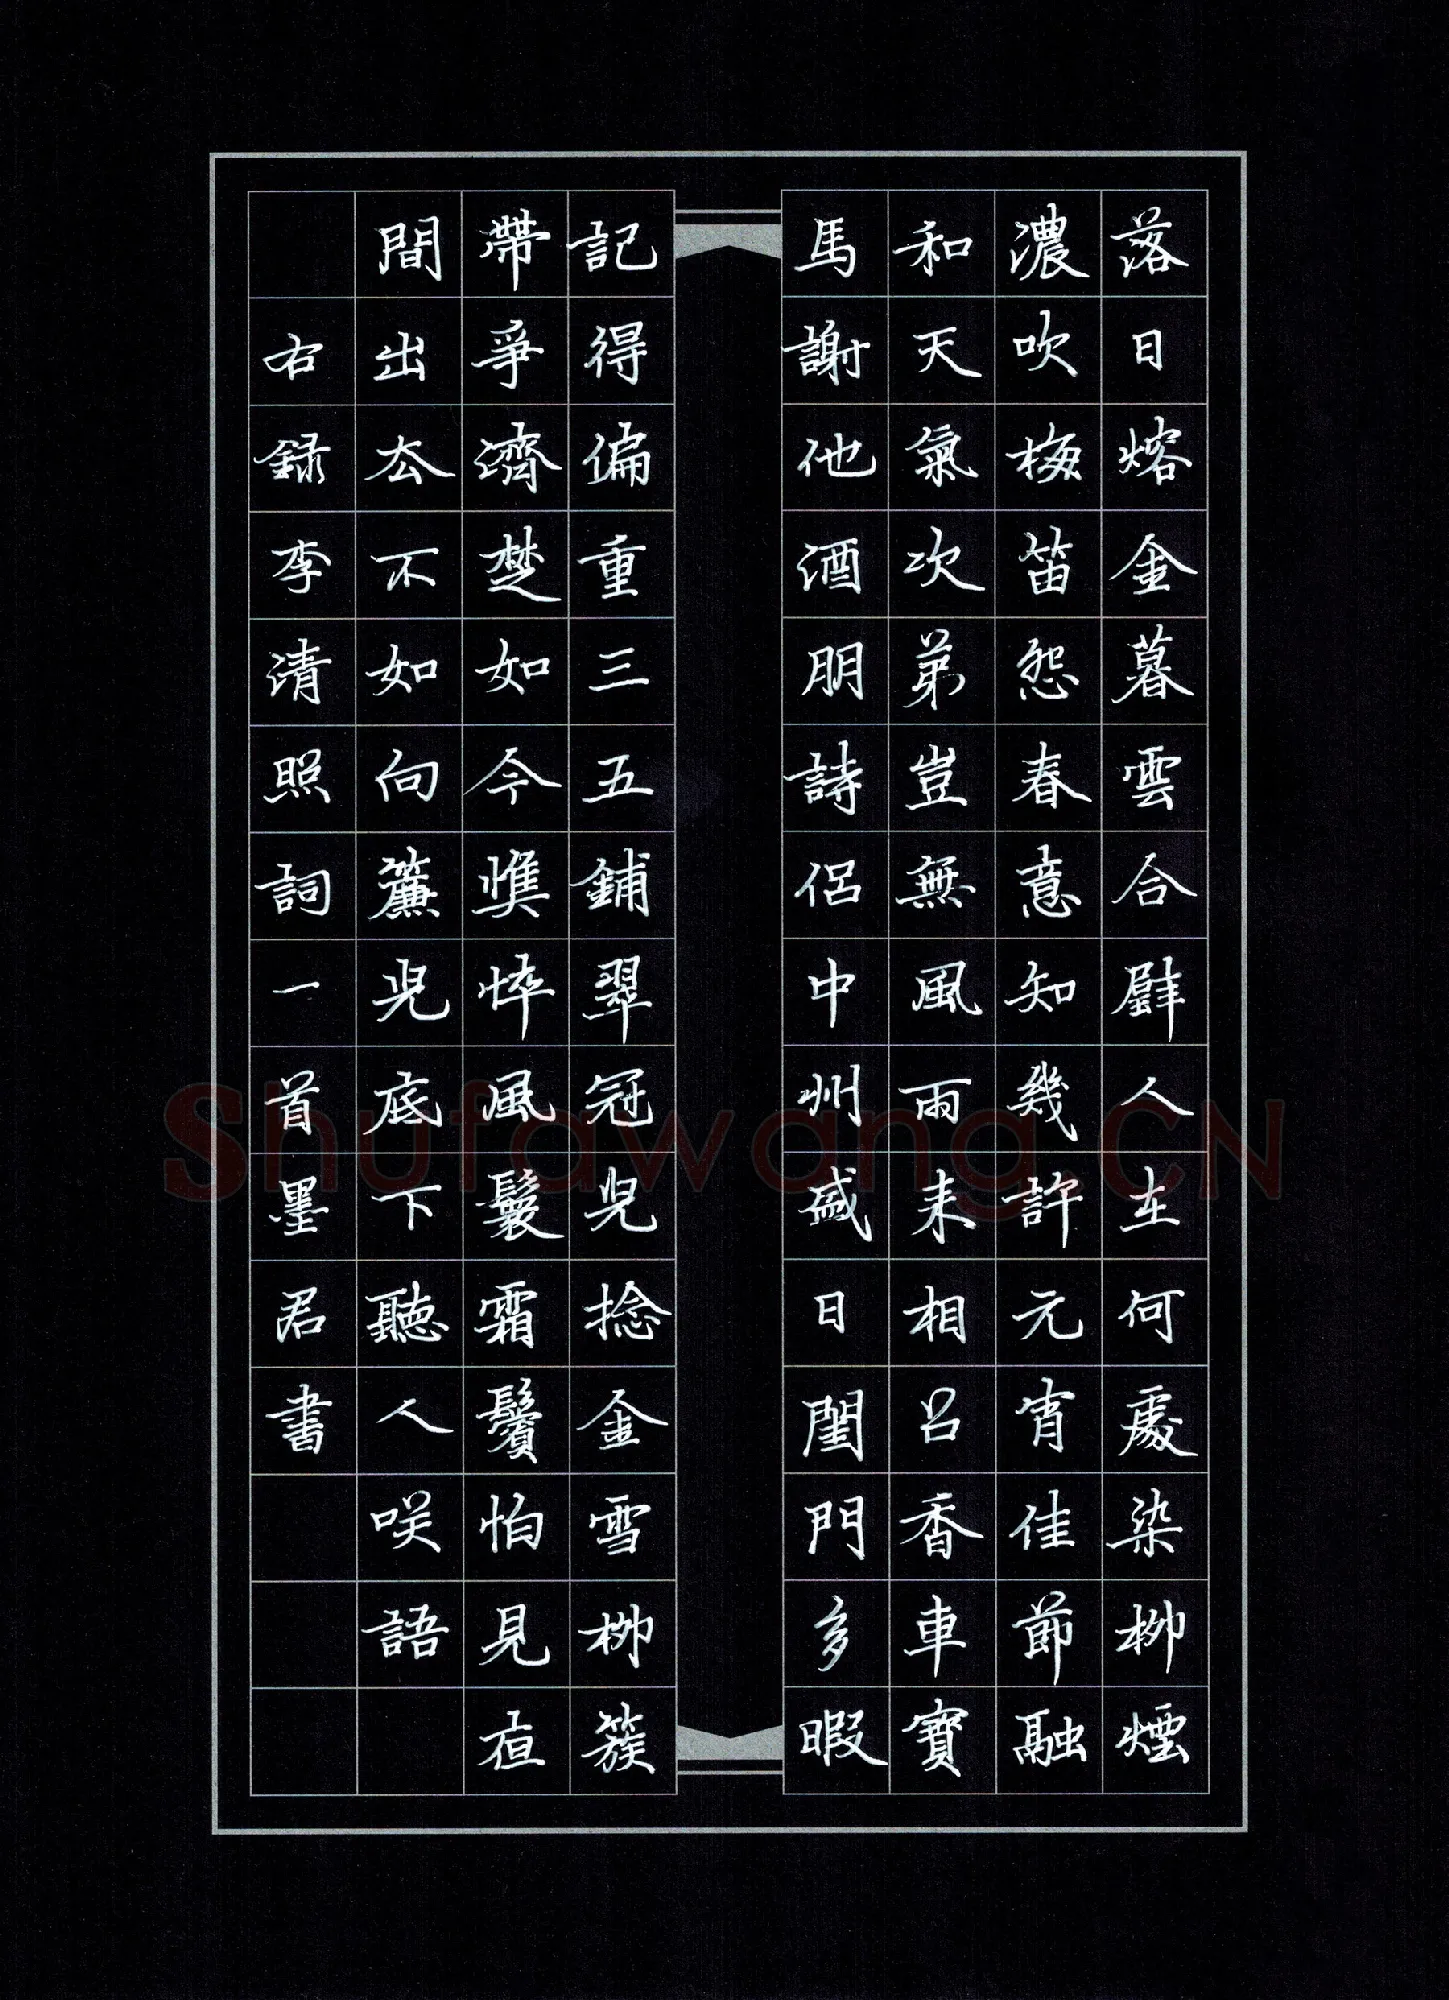 落日熔金暮雲合璧人在何處染柳煙
濃吹梅笛怨春意知幾許元宵佳節融
和天氣次弟豈無風雨来相召香車寶
馬謝他酒朋詩侶中州盛日閨門多暇
記得偏重三五鋪翠冠兒捻金雪柳簇
帶爭濟楚如今憔悴風鬟霜鬢怕見亱
間出去不如向簾兒底下聽人咲語
右録李清照詞一首墨君書
Shufawang.CN